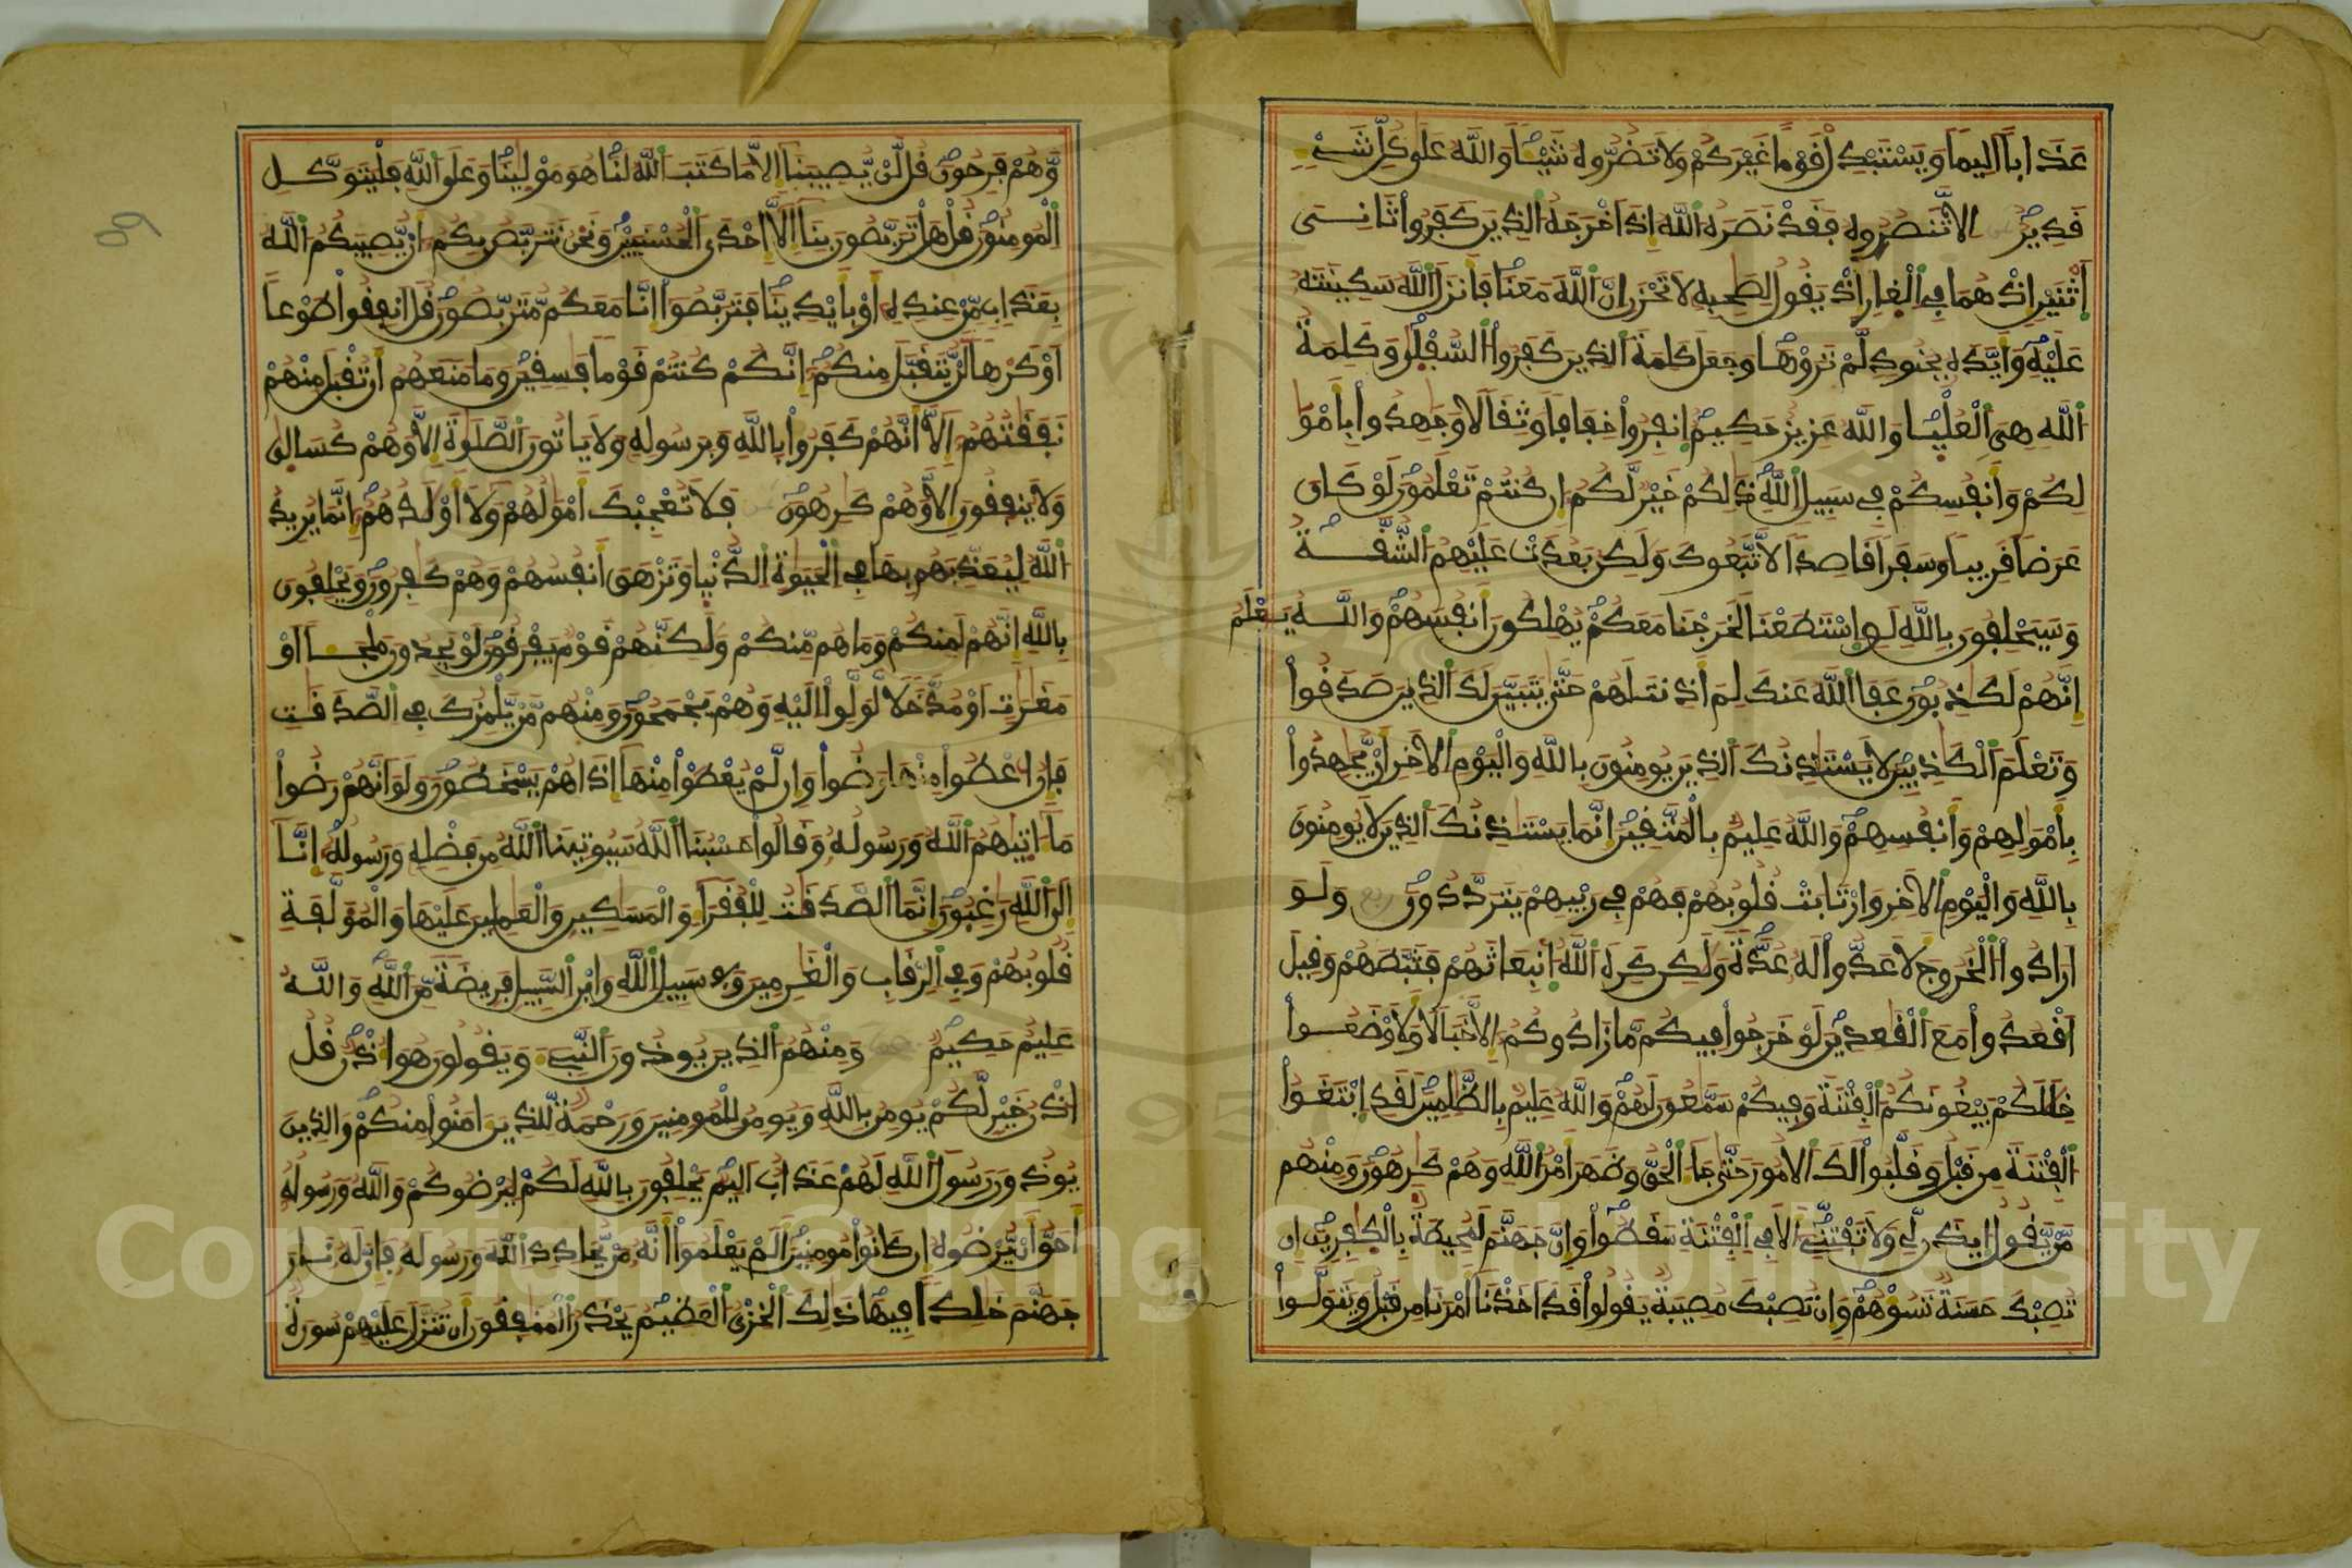 عَذَابًا اَلِيمًا وَيَسْتَبْدِلْ قَوْمًا غَيْرَكُمْ وَلَا تَضُرُّوهُ شَيْـًٔا وَاللَّهُ عَلَىٰ كُلِّ شَےْءٍ
قَدِيرٌ اِلَّا تَنصُرُوهُ فَقَدْ نَصَرَهُ اللَّهُ إِذَ اَخْرَجَهُ الذِينَ كَفَرُوا ثَانِىَ
اَثْنَيْنِ إِذْ هُمَا فِي الْغِارِ إِذْ يَقُولُ لِصَٰحِبِهِ لَا تَحْزَنِ انَّ اللَّهَ مَعَنَا فَأَنزَلَ اللَّهُ سَكِينَتَهُ
عَلَيْهِ وَأَيَّدَهُ بِجُنُودٍ لَّمْ تَرَوْهَا وَجَعَلَ كَلِمَةَ الذِينَ كَفَرُوا السُّفْلَىٰ وَكَلِمَةُ
اللَّهِ هِىَ الْعُلْيَا وَاللَّهُ عَزِيزٌ حَكِيمٌ اِنفِرُوا خِفَافًا وَثِقَالًا وَجَٰهِدُوا بِأَمْوَٰ
لِكُمْ وَأَنفُسِكُمْ فِي سَبِيلِ اللَّهِ ذَٰلِكُمْ خَيْرٌ لَّكُمُ إِن كُنتُمْ تَعْلَمُونَ لَوْ كَانَ
عَرَضًا قَرِيبًا وَسَفَرًا قَاصِدًا لَّاتَّبَعُوكَ وَلَٰكِن بَعُدَتْ عَلَيْهِمُ الشُّقَّةُ
وَسَيَحْلِفُونَ بِاللَّهِ لَوِ اسْتَطَعْنَا لَخَرَجْنَا مَعَكُمْ يُهْلِكُونَ أَنفُسَهُمْ وَاللَّهُ يَعْلَمُ
إِنَّهُمْ لَكَٰذِبُونَ عَفَا اللَّهُ عَنكَ لِمَ أَذِنتَ لَهُمْ حَتَّىٰ يَتَبَيَّنَ لَكَ الذِينَ صَدَقُوا
وَتَعْلَمَ الْكَٰذِبِينَ لَا يَسْتَٰذِنُكَ الذِينَ يُومِنُونَ بِاللَّهِ وَالْيَوْمِ الَاخِرِ أَنْ يُّجَٰهِدُوا
بِأَمْوَٰلِهِمْ وَأَنفُسِهِمْ وَاللَّهُ عَلِيمٌ بِالْمُتَّقِينَ إِنَّمَا يَسْتَٰذِنُكَ الذِينَ لَا يُومِنُونَ
بِاللَّهِ وَالْيَوْمِ الَاخِرِ وَارْتَابَتْ قُلُوبُهُمْ فَهُمْ فِي رَيْبِهِمْ يَتَرَدَّدُونَ ربع وَلَوَ
اَرَادُوا الْخُرُوجَ لَأَعَدُّوا لَهُ عُدَّةً وَلَٰكِن كَرِهَ اللَّهُ انۢبِعَاثَهُمْ فَثَبَّطَهُمْ وَقِيلَ
اَقْعُدُوا مَعَ الْقَٰعِدِينَ لَوْ خَرَجُوا فِيكُم مَّا زَادُوكُمُ إِلَّا خَبَالًا وَلَأَوْضَعُوا
خِلَٰلَكُمْ يَبْغُونَكُمُ الْفِتْنَةَ وَفِيكُمْ سَمَّٰعُونَ لَهُمْ وَاللَّهُ عَلِيمٌ بِالظَّٰلِمِينَ لَقَدِ ابْتَغَوُا
الْفِتْنَةَ مِن قَبْلُ وَقَلَّبُوا لَكَ الُامُورَ حَتَّىٰ جَاءَ الْحَقُّ وَظَهَرَ أَمْرُ اللَّهِ وَهُمْ كَٰرِهُونَ وَمِنْهُم
مَّنْ يَّقُولُ ايذَن لِّي وَلَا تَفْتِنِّي أَلَا فِي الْفِتْنَةِ سَقَطُوا وَإِنَّ جَهَنَّمَ لَمُحِيطَةٌ بِالْكَٰفِرِينَ إِن
تُصِبْكَ حَسَنَةٌ تَسُؤْهُمْ وَإِن تُصِبْكَ مُصِيبَةٌ يَقُولُوا قَدَ اَخَذْنَا أَمْرَنَا مِن قَبْلُ وَيَتَوَلَّوا
وَّهُمْ فَرِحُونَ قُل لَّنْ يُّصِيبَنَا إِلَّا مَا كَتَبَ اللَّهُ لَنَا هُوَ مَوْلَىٰنَا وَعَلَى اللَّهِ فَلْيَتَوَكَّلِ
الْمُومِنُونَ قُلْ هَلْ تَرَبَّصُونَ بِنَا إِلَّا إِحْدَى الْحُسْنَيَيْنِ وَنَحْنُ نَتَرَبَّصُ بِكُمُ أَنْ يُّصِيبَكُمُ اللَّهُ
بِعَذَابٍ مِّنْ عِندِهِ أَوْ بِأَيْدِينَا فَتَرَبَّصُوا إِنَّا مَعَكُم مُّتَرَبِّصُونَ قُلَ انفِقُوا طَوْعًا
اَوْ كَرْهًا لَّنْ يُّتَقَبَّلَ مِنكُمُ إِنَّكُمْ كُنتُمْ قَوْمًا فَٰسِقِينَ وَمَا مَنَعَهُمُ أَن تُقْبَلَ مِنْهُمْ
نَفَقَٰتُهُمُ إِلَّا أَنَّهُمْ كَفَرُوا بِاللَّهِ وَبِرَسُولِهِ وَلَا يَاتُونَ الصَّلَوٰةَ إِلَّا وَهُمْ كُسَالَىٰ
وَلَا يُنفِقُونَ إِلَّا وَهُمْ كَٰرِهُونَ فَلَا تُعْجِبْكَ أَمْوَٰلُهُمْ وَلَا أَوْلَٰدُهُمُ إِنَّمَا يُرِيدُ
اللَّهُ لِيُعَذِّبَهُم بِهَا فِي الْحَيَوٰةِ الدُّنْيَا وَتَزْهَقَ أَنفُسُهُمْ وَهُمْ كَٰفِرُونَ وَيَحْلِفُونَ
بِاللَّهِ إِنَّهُمْ لَمِنكُمْ وَمَا هُم مِّنكُمْ وَلَٰكِنَّهُمْ قَوْمٌ يَفْرَقُونَ لَوْ يَجِدُونَ مَلْجَـًٔا اَوْ
مَغَٰرَٰتٍ اَوْ مُدَّخَلًا لَّوَلَّوِا اِلَيْهِ وَهُمْ يَجْمَحُونَ وَمِنْهُم مَّنْ يَّلْمِزُكَ فِي الصَّدَقَٰتِ
فَإِنُ اعْطُوا مِنْهَا رَضُوا وَإِن لَّمْ يُعْطَوْا مِنْهَا إِذَا هُمْ يَسْخَطُونَ وَلَوَ اَنَّهُمْ رَضُوا
مَا ءَاتَىٰهُمُ اللَّهُ وَرَسُولُهُ وَقَالُوا حَسْبُنَا اللَّهُ سَيُوتِينَا اللَّهُ مِن فَضْلِهِ وَرَسُولُهُ إِنَّا
إِلَى اللَّهِ رَٰغِبُونَ إِنَّمَا الصَّدَقَٰتُ لِلْفُقَرَاءِ وَالْمَسَٰكِينِ وَالْعَٰمِلِينَ عَلَيْهَا وَالْمُؤَلَّفَةِ
قُلُوبُهُمْ وَفِي الرِّقَابِ وَالْغَٰرِمِينَ وَفِي سَبِيلِ اللَّهِ وَابْنِ السَّبِيلِ فَرِيضَةً مِّنَ اللَّهِ وَاللَّهُ
عَلِيمٌ حَكِيمٌ وَمِنْهُمُ الذِينَ يُوذُونَ النَّبِيءَ وَيَقُولُونَ هُوَ أُذْنٌ قُلُ
اذْنُ خَيْرٍ لَّكُمْ يُومِنُ بِاللَّهِ وَيُومِنُ لِلْمُومِنِينَ وَرَحْمَةٌ لِّلذِينَ ءَامَنُوا مِنكُمْ وَالذِينَ
يُوذُونَ رَسُولَ اللَّهِ لَهُمْ عَذَابٌ اَلِيمٌ يَحْلِفُونَ بِاللَّهِ لَكُمْ لِيُرْضُوكُمْ وَاللَّهُ وَرَسُولُهُ
أَحَقُّ أَنْ يُّرْضُوهُ إِن كَانُوا مُومِنِينَ أَلَمْ يَعْلَمُوا أَنَّهُ مَنْ يُّحَادِدِ اللَّهَ وَرَسُولَهُ فَأَنَّ لَهُ نَارَ
جَهَنَّمَ خَٰلِدًا فِيهَا ذَٰلِكَ الْخِزْىُ الْعَظِيمُ يَحْذَرُ الْمُنَٰفِقُونَ أَن تُنَزَّلَ عَلَيْهِمْ سُورَةٌ
Copyright © King Saud University